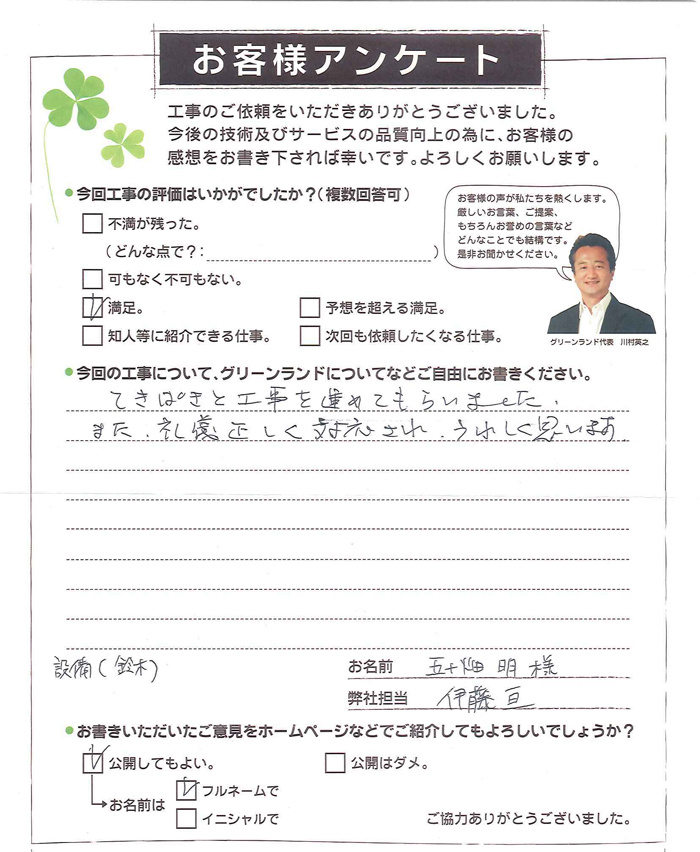 お客様アンケート
工事のご依頼をいただきありがとうございました。
今後の技術及びサービスの品質向上の為に、お客様の
感想をお書き下されば幸いです。よろしくお願いします。
●今回工事の評価はいかがでしたか？（複数回答可）
不満が残った。
（どんな点で？：　　　）
可もなく不可もない。
満足。
予想を超える満足。
知人等に紹介できる仕事。
次回も依頼したくなる仕事。
お客様の声が私たちを熱くします。
厳しいお言葉、ご提案、
もちろんお誉めの言葉など
どんなことでも結構です。
是非お聞かせください。
グリーンランド代表　川村英之
●今回の工事について、グリーンランドについてなどご自由にお書きください。
てきぱきと工事を進めてもらいました。
また、礼儀正しく対応され、うれしく思います
設備（鈴木）
お名前　五十畑 明 様
弊社担当　伊藤 亘
●お書きいただいたご意見をホームページなどでご紹介してもよろしいでしょうか？
公開してもよい。
公開はダメ。
お名前は
フルネームで
イニシャルで
ご協力ありがとうございました。